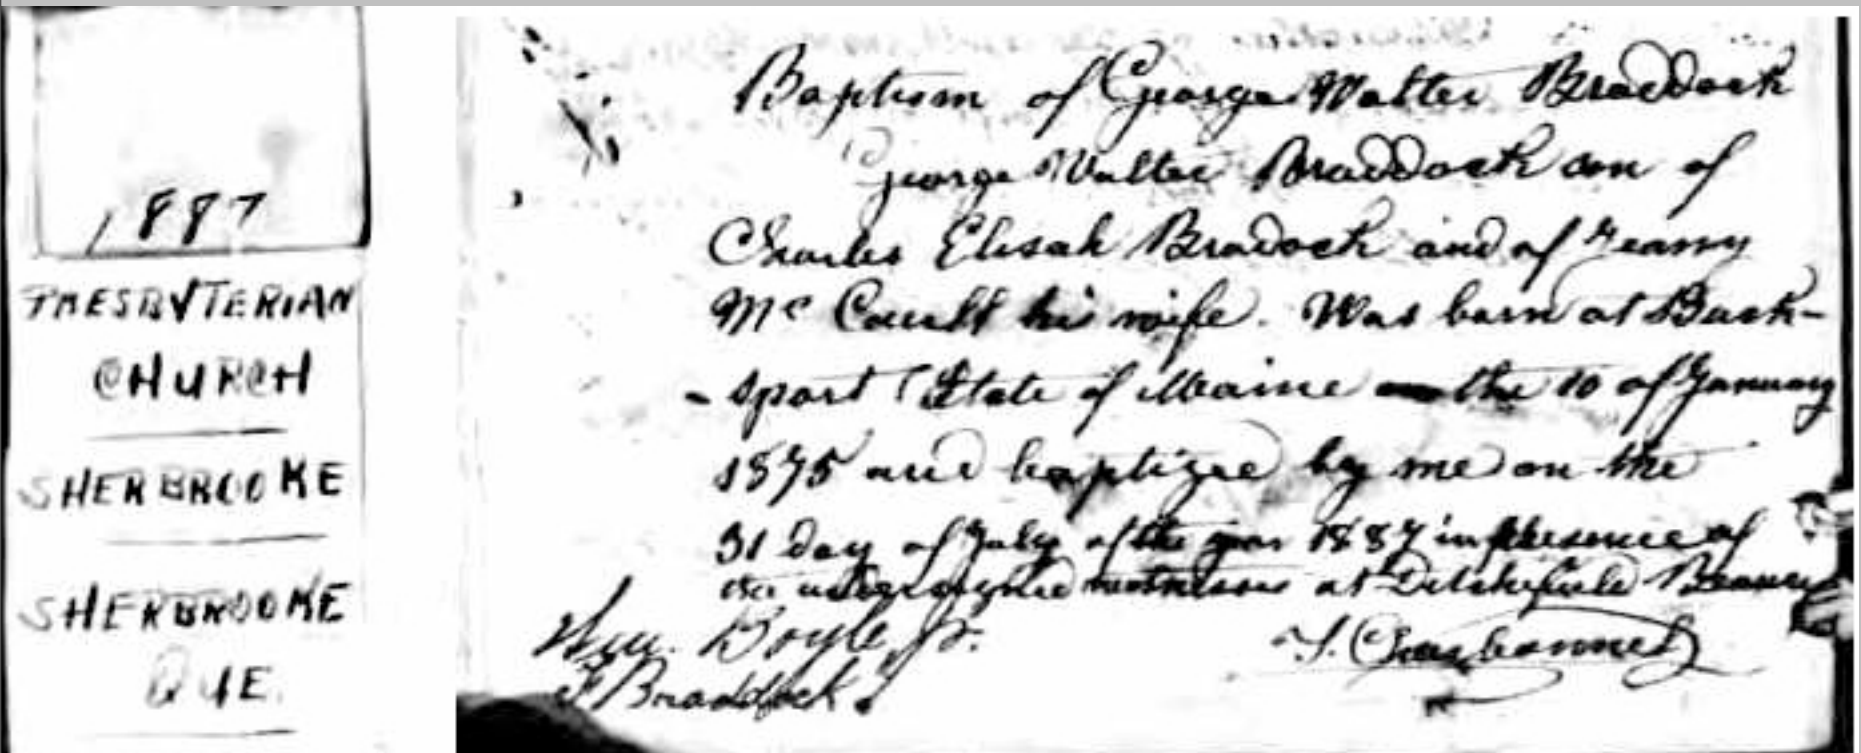 1887
PRESBYTERIAN
CHURCH
SHERBROOKE
SHERBROOKE
QUE.
Baptism of George Walter Braddock
George Walter Braddock son of
Charles Elisah Bradock and of Jeanny
Mc Coull his wife. Was born at Buck-
- sport State of Maine the 10 of January
1875 and baptized by me on the
31 day of July of the year 1887 in presence of
the undersigned witnesses at Ditchfield Beauce
Wm. Boyle Jr.
J. Charbonnel
F Braddock